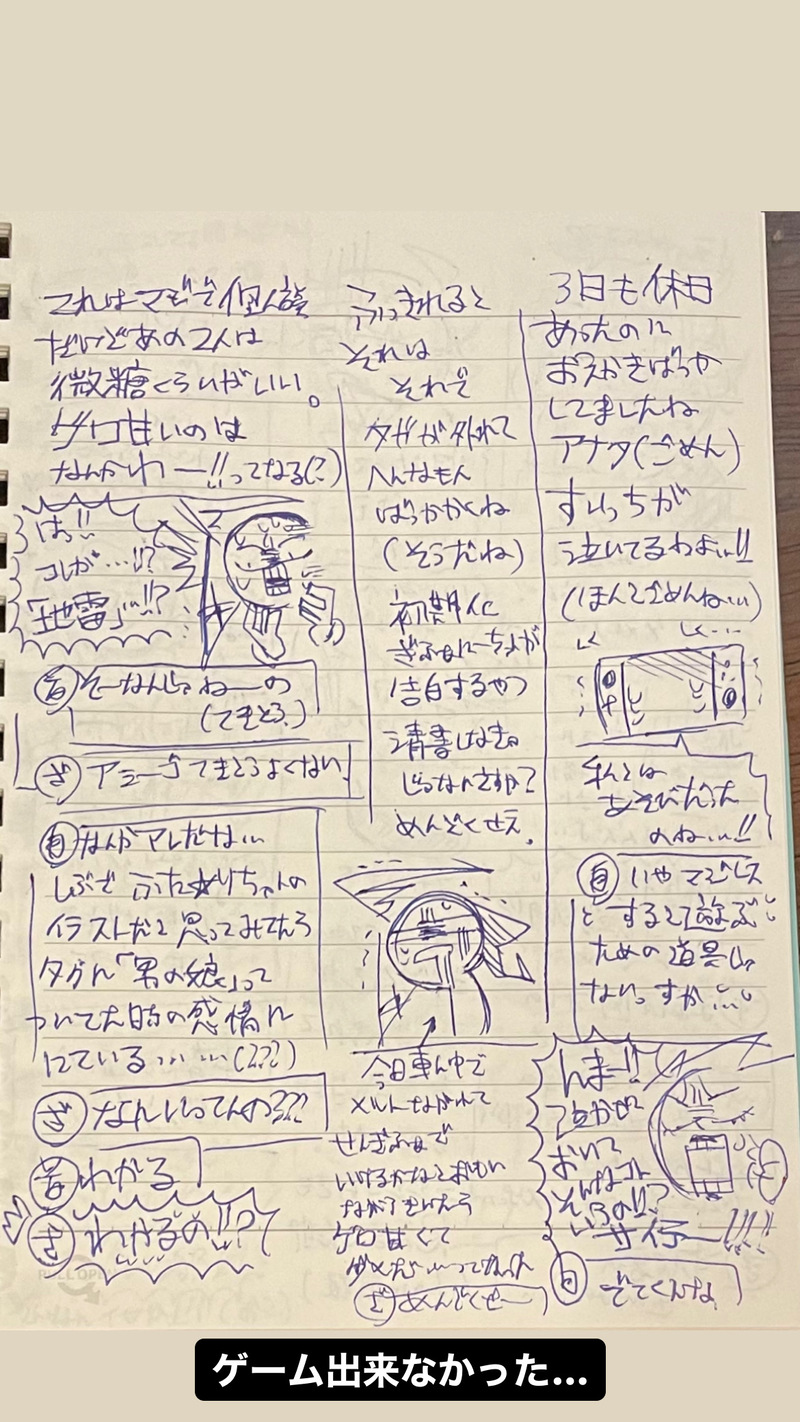 3日も休日
あったのに
おえかきばっか
してましたね
アナタ(ごめん)
すいっちが
泣いてるわよ…!!
(ほんとごめんね…)
私とは
あそびだった
のね…!!
自 いや マジレス
すると遊ぶ
ための道具じゃ
ないっすか…
んま!!
泣かせて
おいて
そんなコト
いうの!!?
サイテー!!!
自 でてくんな
ふっきれると
それは
それで
タガが外れて
へんなもん
ばっかかくね
(そうだね)
初期化
告白するやつ
清書しなきゃ
めんどくせえ
今日車ん中で
メルトながれて
いけるかなとおもい
ながらきいたら
ゲロ甘くて
ざ めんどくせー
これはマジで個人談
だけどあの2人は
微糖くらいがいい。
ゲロ甘いのは
なんかわー!!ってなる(?)
はっ!!
コレが…!?
「地雷」…!?
そーなんじゃねーの
(てきとう)
ざ アミーゴてきとうよくない!
自 なんかアレだな…
しぶで ふた☆りちゃんの
イラストだと思ってみてたら
タグに「男の娘」って
ついてた時の感情に
にている……(???)
ざ なにいってんの???
わかる
ざ わかるの!!?
ゲーム出来なかった…